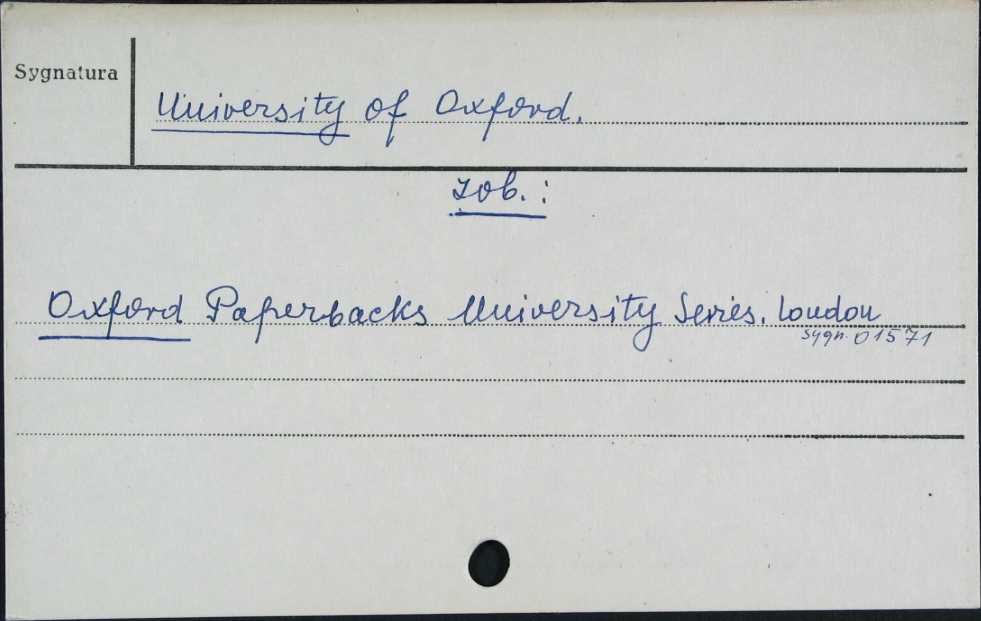 Sygnatura
University of Oxford.
zob. :
Oxford Paperbacks University Series. London
sygn. 01571